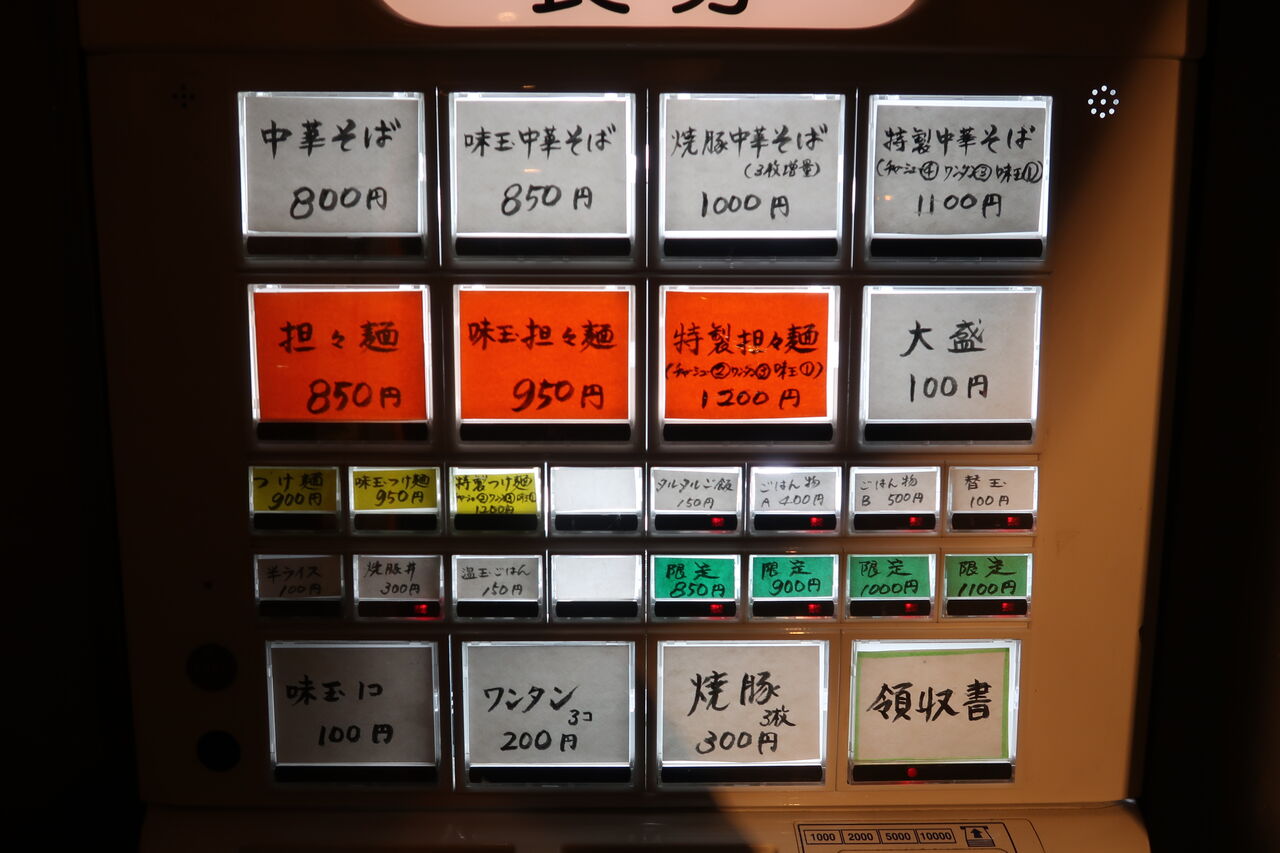 中華そば
800円
味玉中華そば
850円
焼豚中華そば
(3枚増量)
1000円
特製中華そば
(チャーシュー④ワンタン③味玉①)
1100円
担々麺
850円
味玉担々麺
950円
特製担々麺
(チャーシュー②ワンタン③味玉①)
1200円
大盛
100円
つけ麺
900円
味玉つけ麺
950円
特製つけ麺
1200円
タルタルご飯
150円
ごはん物
A 400円
ごはん物
B 500円
替玉
100円
半ライス
100円
焼豚丼
300円
温玉ごはん
150円
限定
850円
限定
900円
限定
1000円
限定
1100円
味玉1コ
100円
ワンタン
3コ
200円
焼豚
3枚
300円
領収書
1000 2000 5000 10000